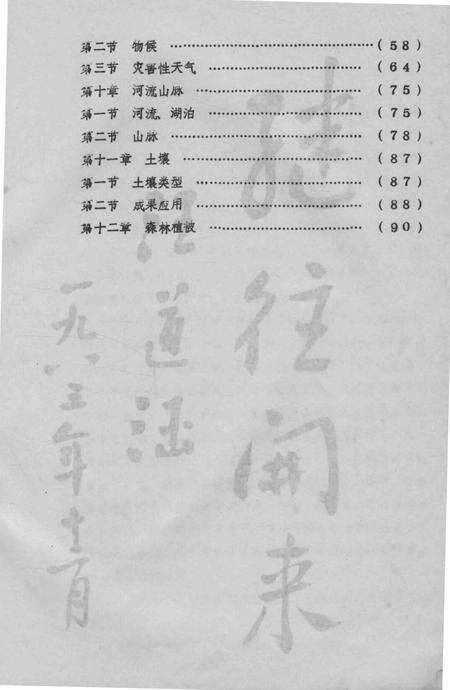 第二节 物候 ……………………………(58)
第三节 灾害性天气 ……………………………(64)
第十章 河流山脉 ……………………………(75)
第一节 河流、湖泊 ……………………………(75)
第二节 山脉 ……………………………(78)
第十一章 土壤 ……………………………(87)
第一节 土壤类型 ……………………………(87)
第二节 成果应用 ……………………………(88)
第十二章 森林植被 ……………………………(90)
继往开来
汪道涵
一九八三年十一月